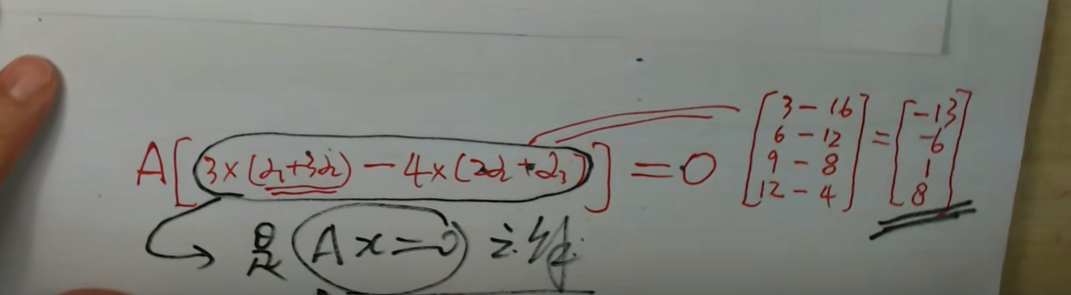 A[3×(α₁+3α₂)−4×(2α₂+α₃)]=0 [3−16 6−12 9−8 12−4]=[−13 −6 1 8]
是 Ax=0 之